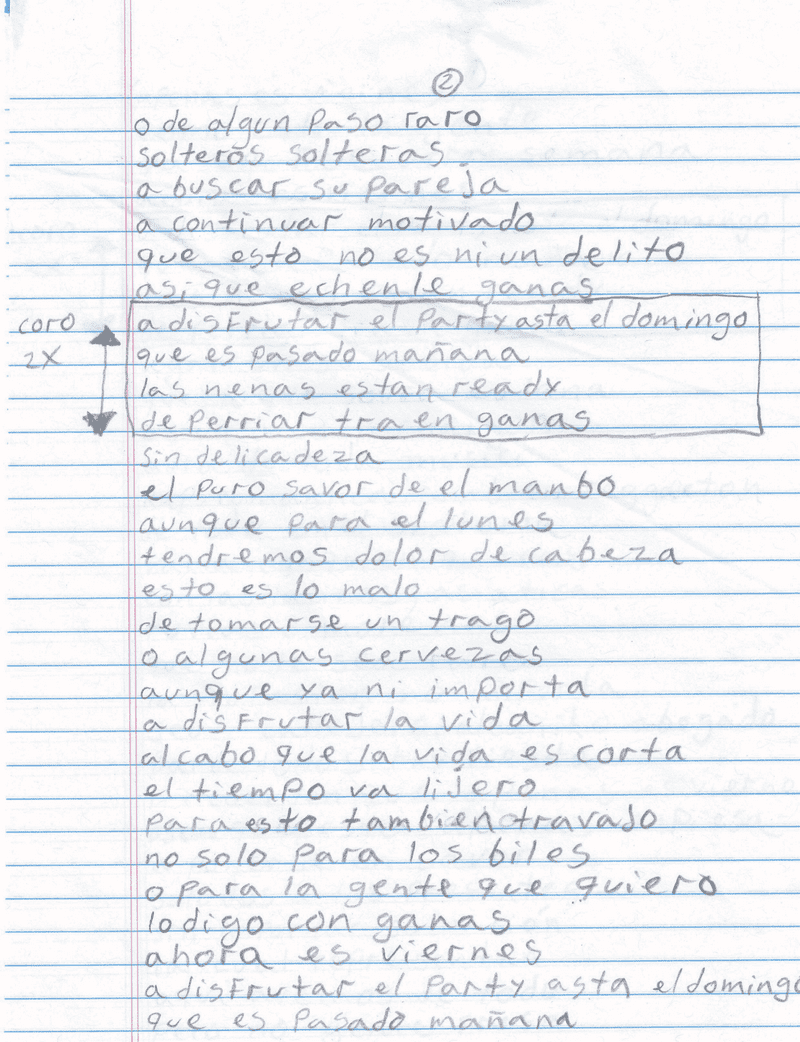 2
o de algun paso raro
solteros solteras
a buscar su pareja
a continuar motivado
que esto no es ni un delito
asi que echenle ganas
coro
2x
a disfrutar el party asta el domingo
que es pasado mañana
las nenas estan ready
de perriar tra en ganas
sin delicadeza
el puro savor de el manbo
aunque para el lunes
tendremos dolor de cabeza
esto es lo malo
de tomarse un trago
o algunas cervezas
aunque ya ni importa
a disfrutar la vida
alcabo que la vida es corta
el tiempo va lijero
para esto tambien travajo
no solo para los biles
o para la gente que quiero
lo digo con ganas
ahora es viernes
a disfrutar el party asta el domingo
que es pasado mañana